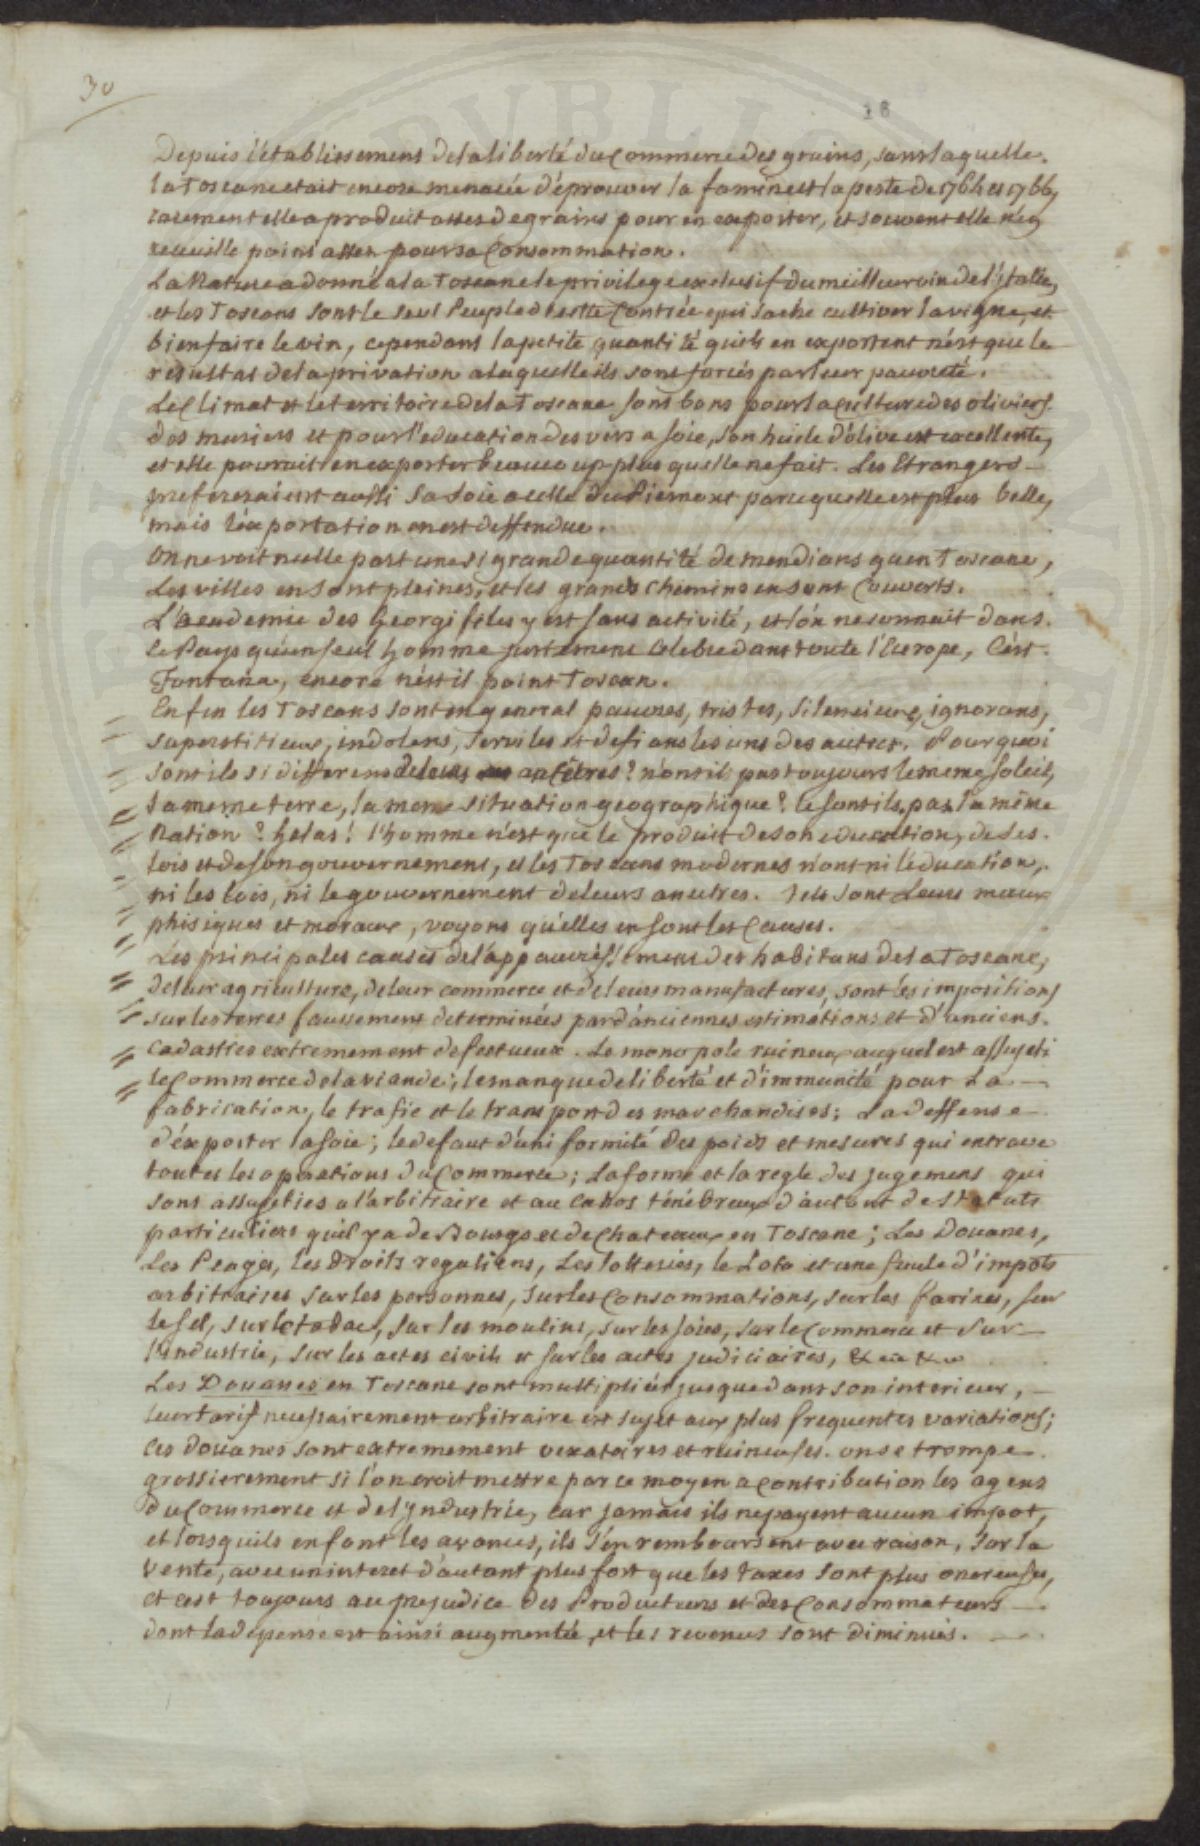 30
18
Depuis l'établissement de la liberté du Commerce des grains, sans laquelle
la Toscane etait encore menacée d'éprouver la famine et la peste de 1764 et 1766,
rarement elle a produit assés de grains pour en exporter, et souvent elle n'en
recueille point assez pour sa Consommation.
La Nature a donné a la Toscane le privilege exclusif du meilleur vin de l'italie,
et les Toscans sont le seul Peuple de cette Contrée qui sache cultiver la vigne, et
bien faire le vin, cependant la petite quantité qu'ils en exportent n'est que le
résultat de la privation a laquelle ils sont forcés par leur pauvreté.
Le Climat et le territoire de la Toscane sont bons pour la Culture des oliviers
des muriers et pour l'education des vers a soie, son huile d'olive est excellente,
et elle pourrait en exporter beaucoup plus qu'elle ne fait. Les Etrangers
prefereraient aussi sa soie a celle du Piemont parce qu'elle est plus belle,
mais l'exportation en est deffendue.
On ne voit nulle part une si grande quantité de mendians qu'en Toscane,
Les villes en sont pleines, et les grands chemins en sont Couverts.
L'academie des Georgifiles y est sans activité, et l'on ne connait dans
ce Pays qu'un seul homme justement Célebre dans toute l'Europe, C'est
Fontana, encore n'est il point Toscan.
Enfin les Toscans sont en general pauvres, tristes, silencieux, ignorans,
superstitieux, indolens, serviles et defians les uns des autres. Pourquoi
sont ils si differens de leurs ancêtres? n'ont ils pas toujours le meme soleil,
la meme terre, la meme situation geographique? Ne sont ils pas la même
Nation? helas! l'homme n'est que le produit de son education, de ses
lois et de son gouvernement, et les Toscans modernes n'ont ni l'éducation,
ni les lois, ni le gouvernement de leurs ancetres. Tels sont Leurs maux
phisiques et moraux, voyons qu'elles en sont les Causes.
Les principales causes de l'appauvrissement des habitans de la Toscane,
de leur agriculture, de leur commerce et de leurs manufactures, sont les impositions
sur les terres faussement determinées par d'anciennes estimations et d'anciens
Cadastres extremement defectueux. Le monopole ruineux auquel est assujeti
le Commerce de la viande; le manque de liberté et d'immunité pour La
fabrication, le trafic et le transport des marchandises; La deffense
d'exporter la soie; le defaut d'uniformité des poids et mesures qui entrave
toutes les operations du Commerce; La forme et la regle des jugemens qui
sont assujetties a l'arbitraire et au Cahos ténébreux d'autant de statuts
particuliers qu'il y a de Bourgs et de Chateaux en Toscane; Les Douanes,
Les Péages, les droits regaliens, Les lotteries, le Loto et une foule d'impots
arbitraires sur les personnes, sur les Consommations, sur les farines, sur
le sel, sur le tabac, sur les moulins, sur les soies, sur le Commerce et sur
l'industrie, sur les actes civils et sur les actes judiciaires, &ca &ca
Les Douanes en Toscane sont multipliées jusque dans son interieur,
leur tarif necessairement arbitraire est sujet aux plus frequentes variations;
Ces douanes sont extremement vexatoires et ruineuses. on se trompe
grossierement si l'on croit mettre par ce moyen a Contribution les agens
du Commerce et de l'Yndustrie, car jamais ils ne payent aucun impot,
et lorsqu'ils en font les avances, ils s'en remboursent avec raison, sur la
vente, avec un interet d'autant plus fort que les taxes sont plus onereuses,
et c'est toujours au prejudice des Producteurs et des Consommateurs
dont la depense est ainsi augmentée, et les revenus sont diminués.